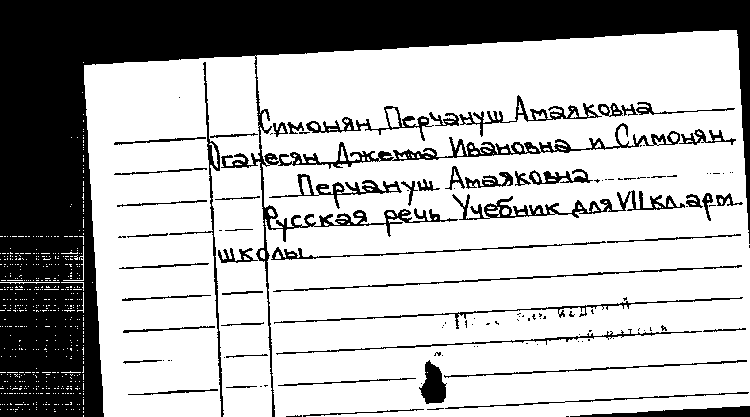 Симонян, Перчануш Амаяковна
Оганесян, Джемма Ивановна и Симонян,
Перчануш Амаяковна.
Русская речь Учебник для VII кл. арм.
школы.